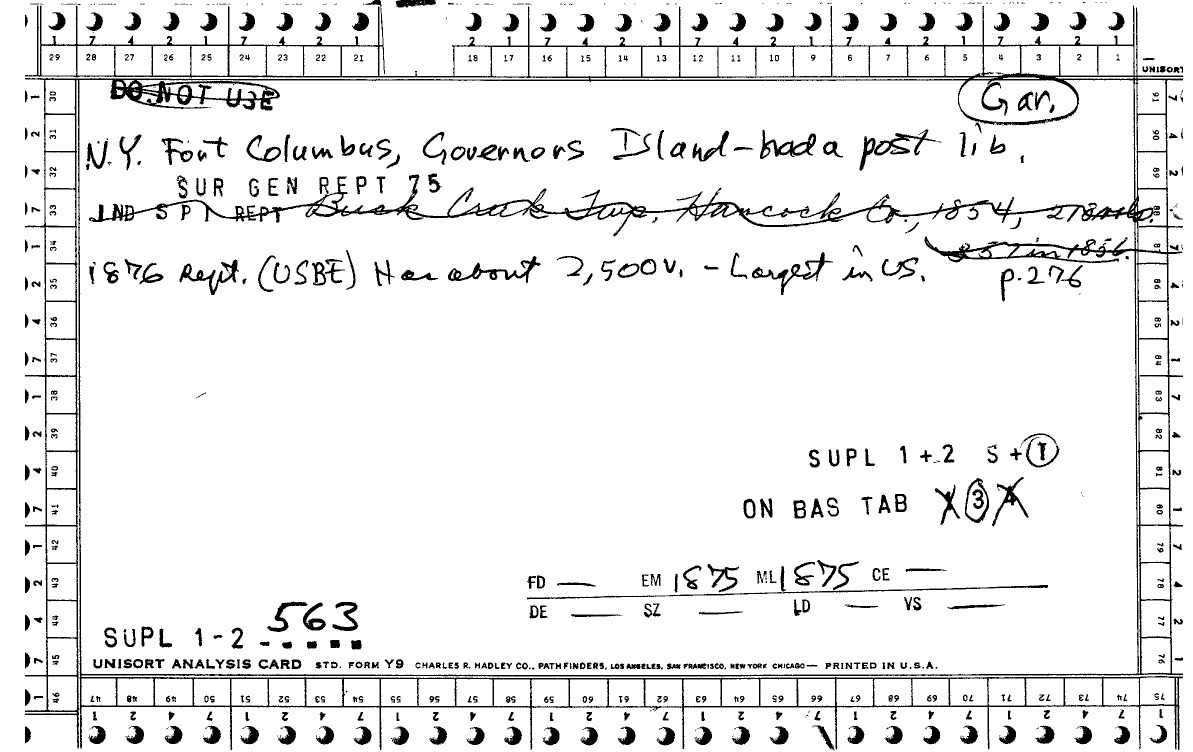 1 7 4 2 1 7 4 2 1 2 1 7 4 2 1 7 4 2 1 7 4 2 1 7 4 2 1
29 28 27 26 25 24 23 22 21 18 17 16 15 14 13 12 11 10 9 8 7 6 5 4 3 2 1
UNISORT
DO NOT USE
Gar.
N.Y. Fort Columbus, Governors Island - had a post lib.
SUR GEN REPT 75
IND SPT REPT Buck Creek Twp. Hancock Co., 1854, 218 vols.
257 in 1856.
1876 Rept. (USBE) Has about 2,500 v. - Largest in US. p.276
SUPL 1+2 S+1
ON BAS TAB 1 3 4
FD — EM 1875 ML 1875 CE —
DE — SZ — LD — VS —
SUPL 1-2 563
UNISORT ANALYSIS CARD STD. FORM Y9 CHARLES R. HADLEY CO., PATHFINDERS, LOS ANGELES, SAN FRANCISCO, NEW YORK CHICAGO — PRINTED IN U.S.A.
47 48 49 50 51 52 53 54 55 56 57 58 59 60 61 62 63 64 65 66 67 68 69 70 71 72 73 74 75